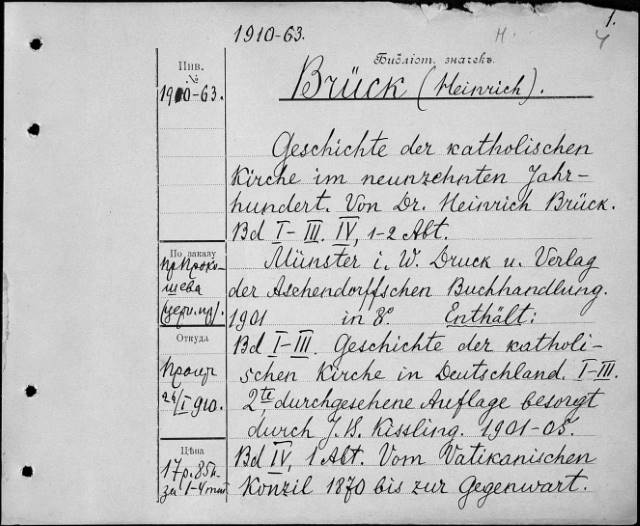 1.
1910-63.
Н.
Инв.
№
1910-63.
Библіот. значекъ.
Brück (Heinrich).
Geschichte der katholischen
Kirche im neunzehnten Jahr-
hundert. Von Dr. Heinrich Brück.
Bd I-III. IV, 1-2 Abt.
Münster i. W. Druck u. Verlag
der Aschendorffschen Buchhandlung.
1901 in 8º Enthält:
Bd I-III. Geschichte der katholi-
schen Kirche in Deutschland. I-III.
2te durchgesehene Auflage besorgt
durch J. B. Kissling. 1901-05.
Bd IV, 1 Abt. Vom Vatikanischen
Konzil 1870 bis zur Gegenwart.
По заказу
пр Проко-
шева
(церк. пр).
Откуда
26/I 910.
Цѣна
17 р. 85 к.
за 1-4